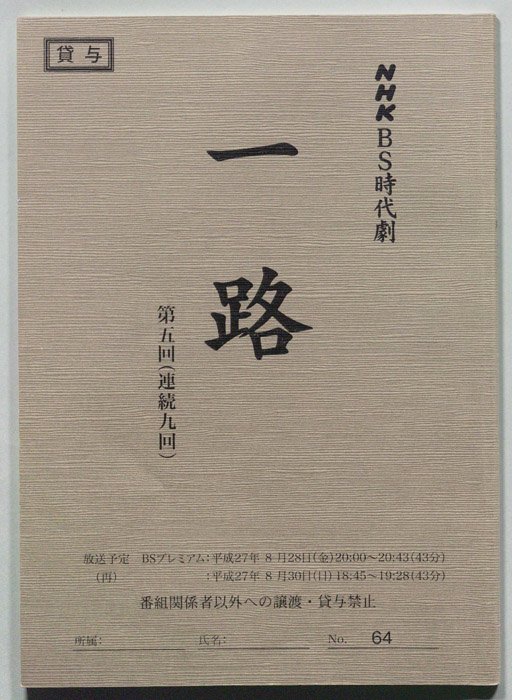 貸与
NHK BS時代劇
一路
第五回(連続九回)
放送予定 BSプレミアム:平成27年 8月28日(金)20:00〜20:43(43分)
(再) :平成27年 8月30日(日)18:45〜19:28(43分)
番組関係者以外への譲渡・貸与禁止
所属: 氏名: No. 64